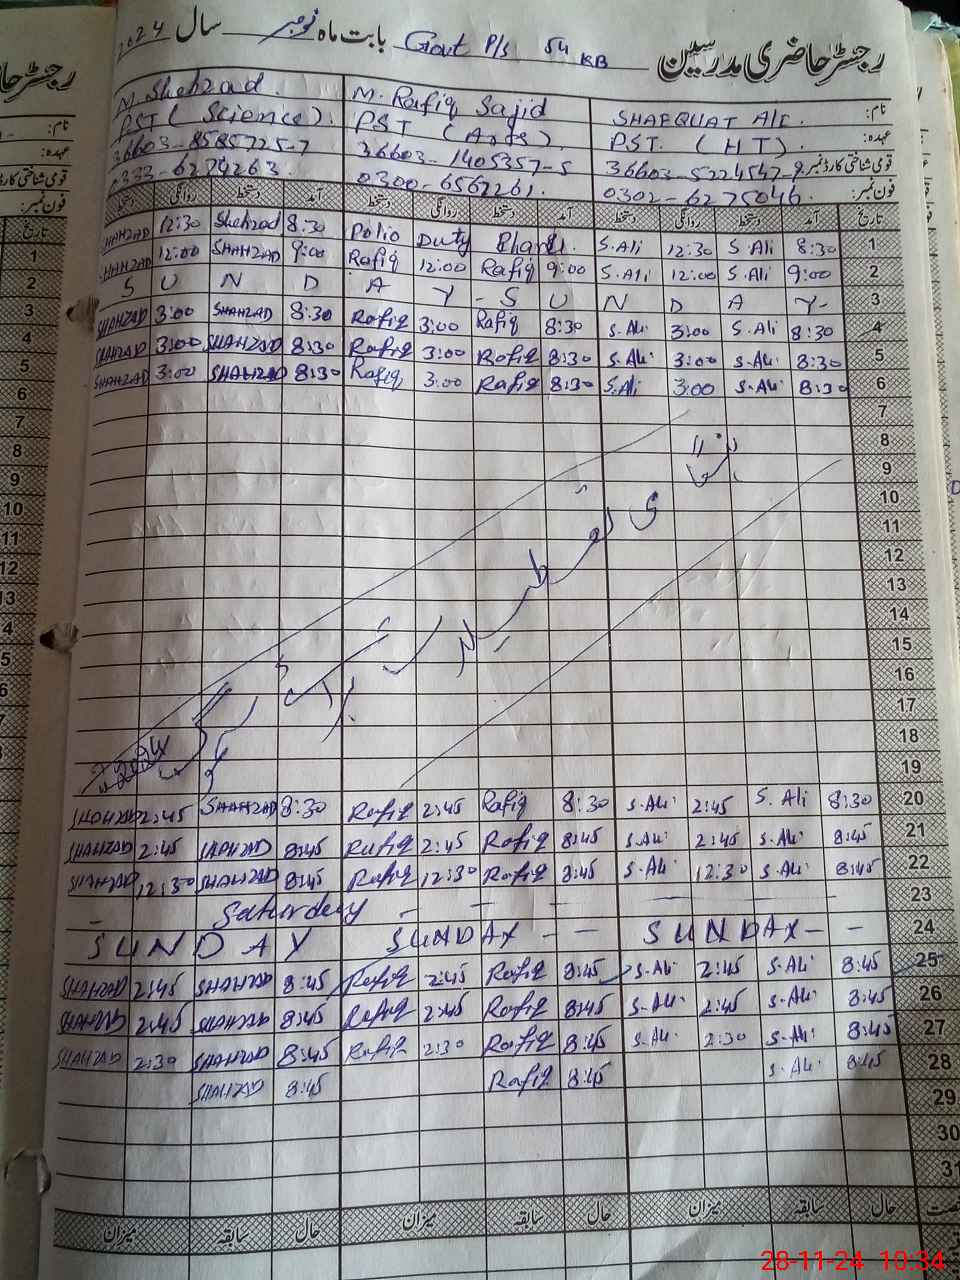 رجسٹر حاضری مدرسین Govt P/s 54 KB بابت ماہ نومبر سال 2024
نام: SHAFQUAT ALI. M. Rafiq Sajid M. Shehzad.
عہدہ: PST. (HT) PST (Arts) PST (Science).
قومی شناختی کارڈ نمبر 36603-1405357-5 36603-8585725-7
فون نمبر: 0302-6275046 0300-6562261. 0333-6274263
تاریخ آمد دستخط روانگی دستخط آمد دستخط روانگی دستخط آمد دستخط روانگی دستخط
SHAHZAD 12:30 Shehzad 8:30 Polio Duty S.Ali 12:30 S.Ali 8:30 1
SHAHZAD 12:00 SHAHZAD 9:00 Rafiq 12:00 Rafiq 9:00 S.Ali 12:00 S.Ali 9:00 2
S U N D A Y - S U N D A Y - 3
SHAHZAD 3:00 SHAHZAD 8:30 Rafiq 3:00 Rafiq 8:30 S.Ali 3:00 S.Ali 8:30 4
SHAHZAD 3:00 SHAHZAD 8:30 Rafiq 3:00 Rafiq 8:30 S.Ali 3:00 S.Ali 8:30 5
SHAHZAD 3:00 SHAHZAD 8:30 Rafiq 3:00 Rafiq 8:30 S.Ali 3:00 S.Ali 8:30 6
7
8
9
10
11
12
13
14
15
16
17
18
19
SHAHZAD 2:45 SHAHZAD 8:30 Rafiq 2:45 Rafiq 8:30 S.Ali 2:45 S.Ali 8:30 20
SHAHZAD 2:45 SHAHZAD 8:45 Rafiq 2:45 Rafiq 8:45 S.Ali 2:45 S.Ali 8:45 21
SHAHZAD 12:30 SHAHZAD 8:45 Rafiq 12:30 Rafiq 8:45 S.Ali 12:30 S.Ali 8:45 22
- Saturday - - - 23
SUNDAY SUNDAY - - SUNDAY - - 24
SHAHZAD 2:45 SHAHZAD 8:45 Rafiq 2:45 Rafiq 8:45 S.Ali 2:45 S.Ali 8:45 25
SHAHZAD 2:45 SHAHZAD 8:45 Rafiq 2:45 Rafiq 8:45 S.Ali 2:45 S.Ali 8:45 26
SHAHZAD 2:30 SHAHZAD 8:45 Rafiq 2:30 Rafiq 8:45 S.Ali 2:30 S.Ali 8:45 27
SHAHZAD 8:45 Rafiq 8:45 S.Ali 8:45 28
29
30
31
حال سابقہ میزان حال سابقہ میزان حال سابقہ میزان
28-11-24 10:34